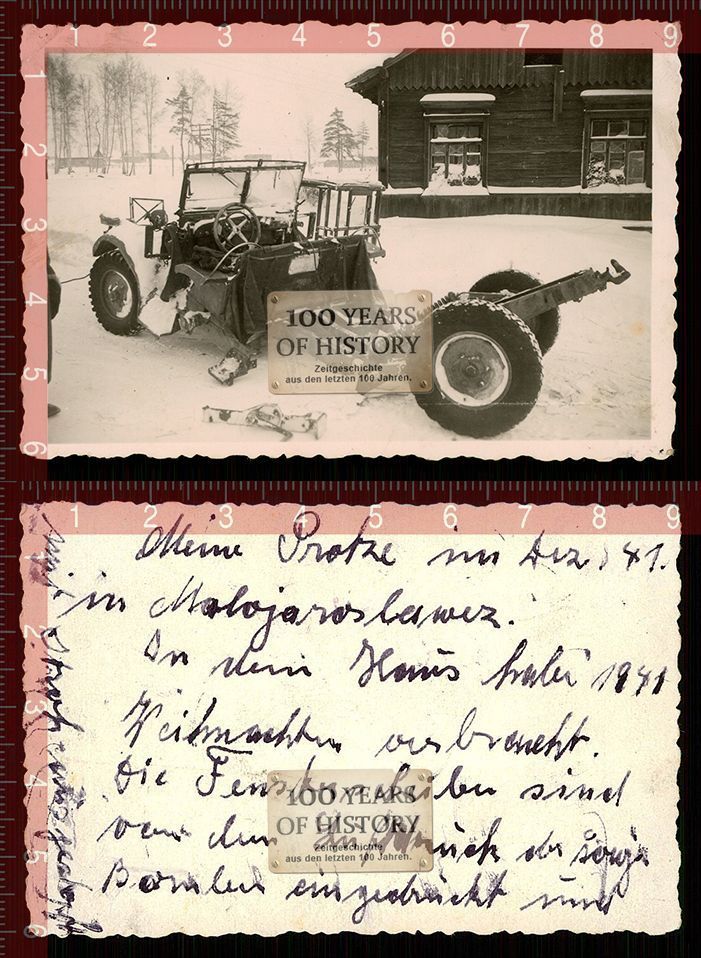 1 2 3 4 5 6 7 8 9
1
2
3
4
5
6
100 YEARS
OF HISTORY
Zeitgeschichte
aus den letzten 100 Jahren.
1 2 3 4 5 6 7 8 9
1
2
3
4
5
6
Meine Protze im Dez. 41.
in Malojaroslawez.
In dem Haus habe 1941
Weihnachten verbracht.
Die Fensterscheiben sind
von dem Luftdruck der
Bomben eingedrückt und
mit Stroh
100 YEARS
OF HISTORY
Zeitgeschichte
aus den letzten 100 Jahren.